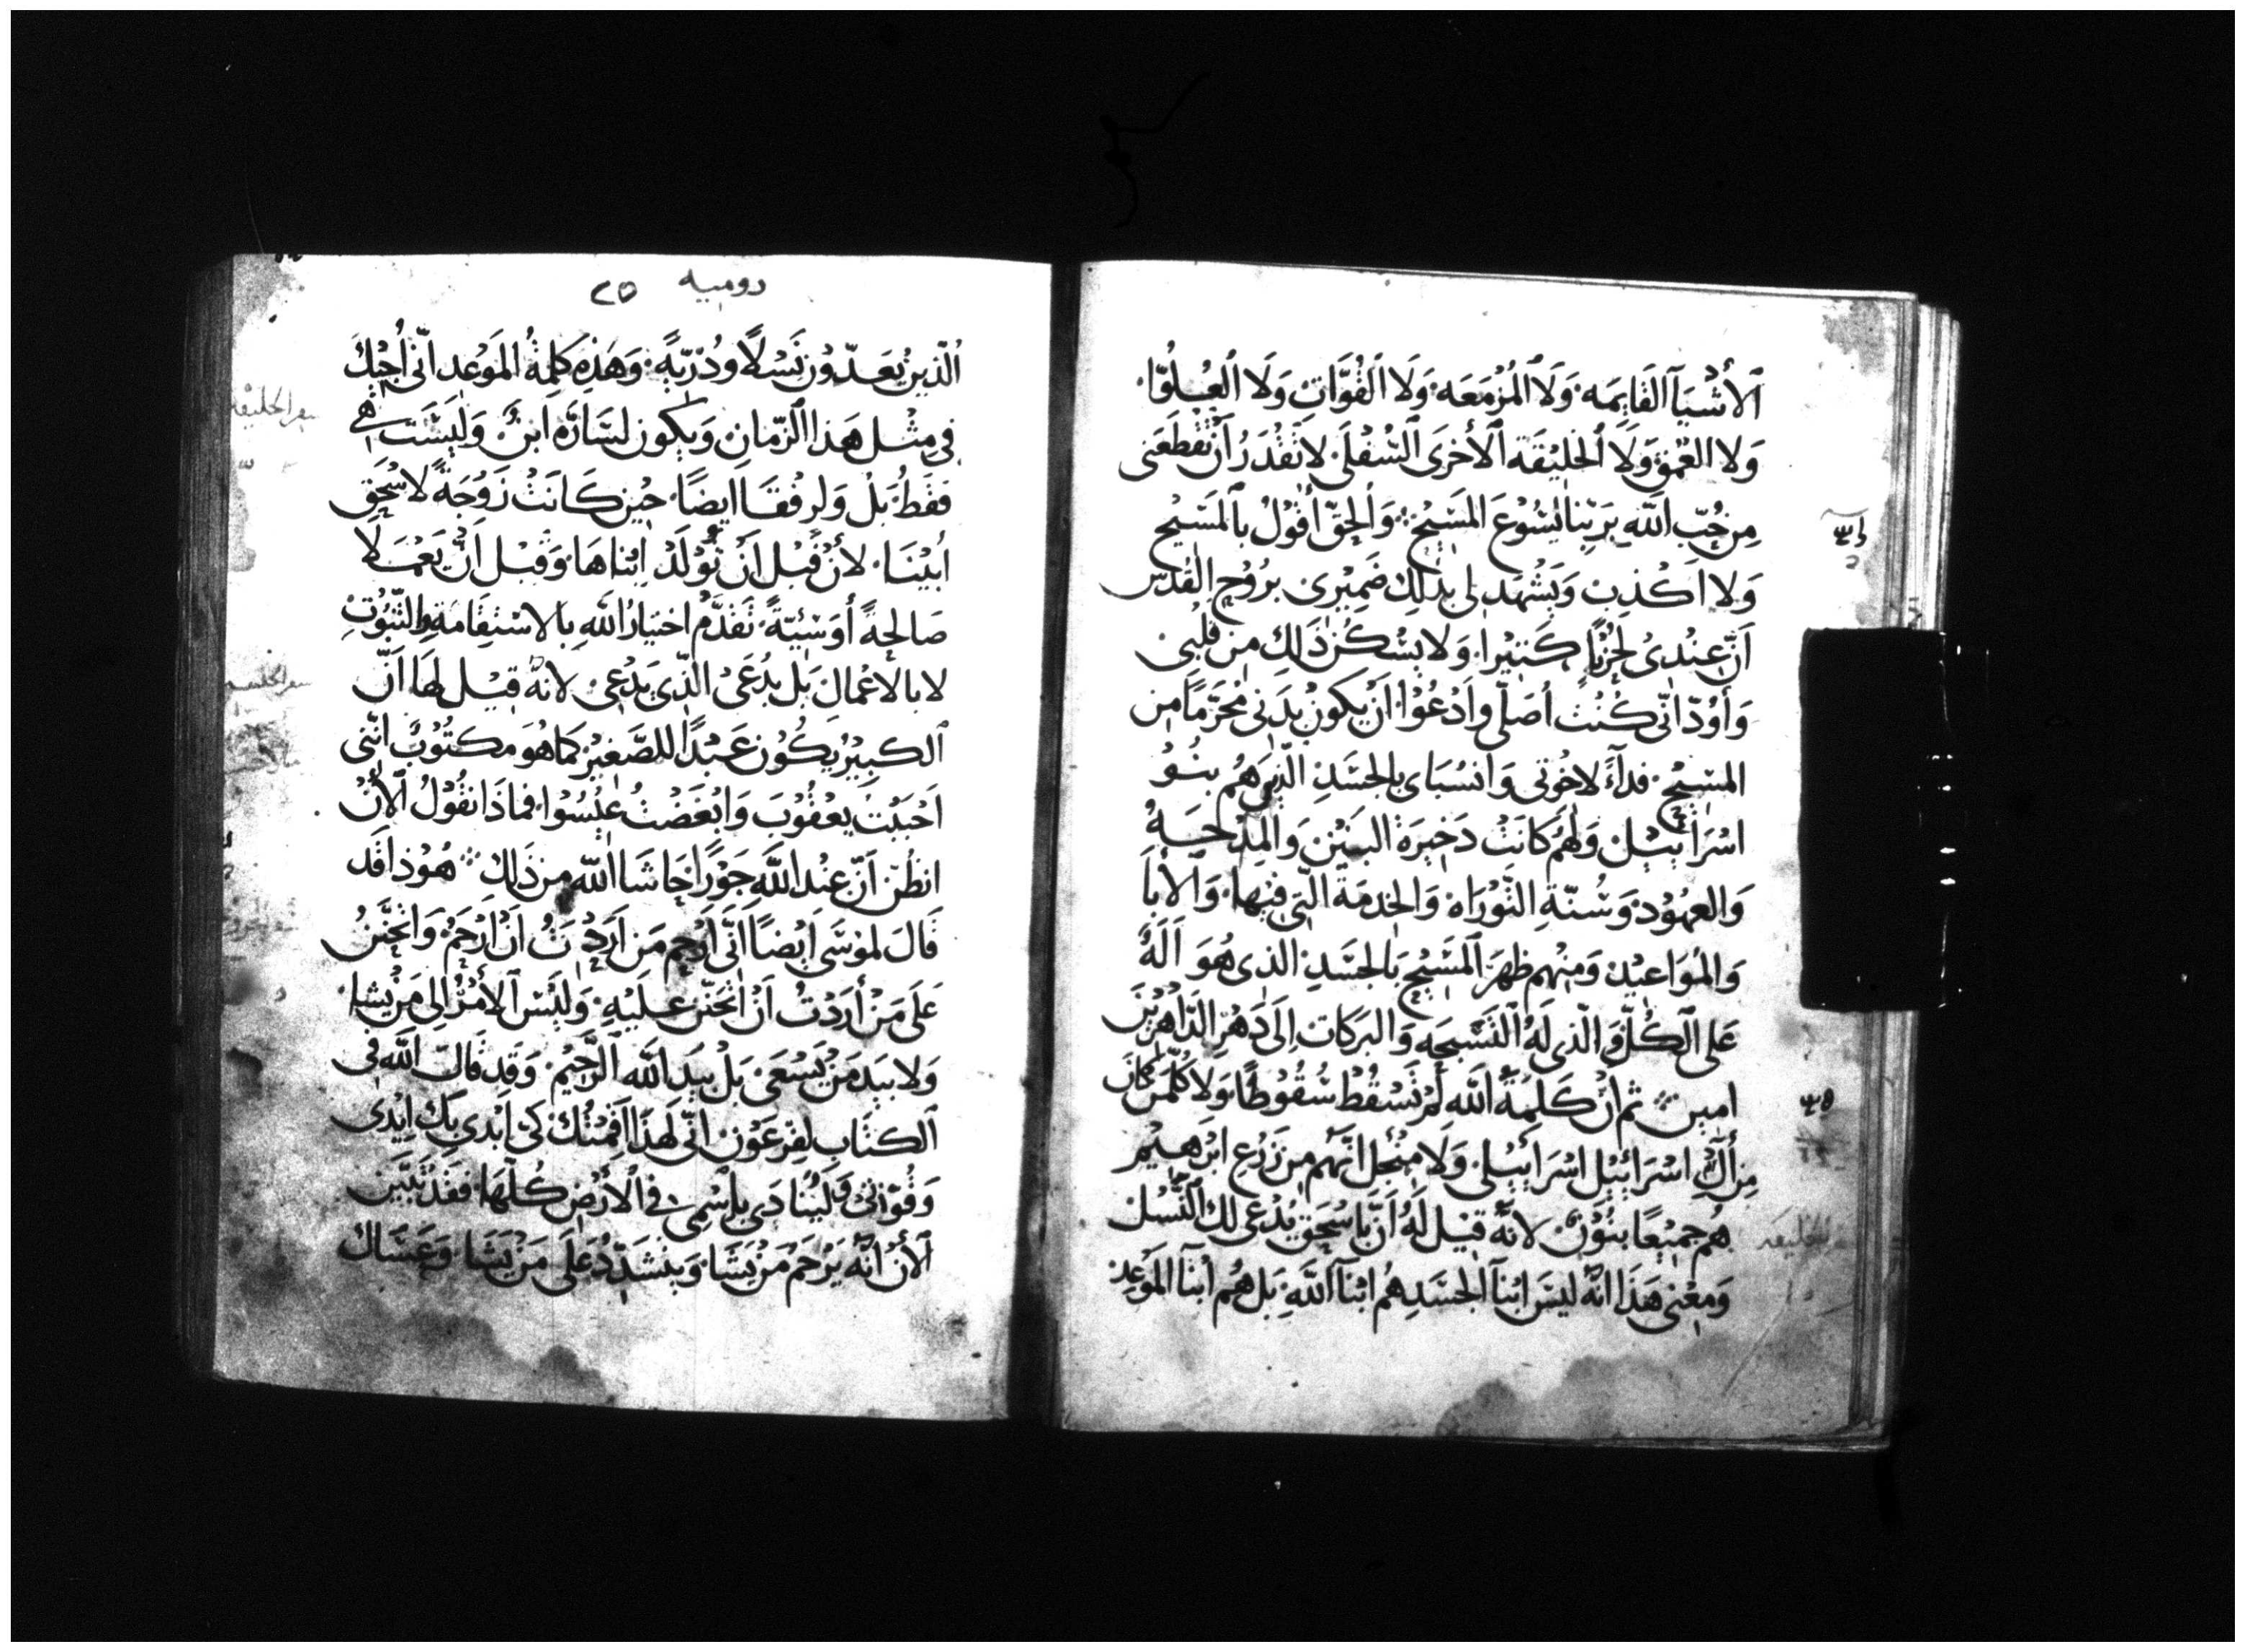 ٱلأَشْيَآ ٱلقَايِمَه وَلَا ٱلمُزْمَعَه وَلَا ٱلقُوَّاتِ وَلَا ٱلعُلُوّ
وَلا العُمْق وَلَا ٱلخَلِيْقَه ٱلأُخرَى ٱلسُّفْلَى لا تَقْدَرُ أَنْ تَقْطَعَنى
مِن حُبّ اللّه بِرَبِّنا يَسُوْعَ المَسِيْحْ وَالحَقّ أَقُوْلُ بالمَسِيْحِ
وَلا اَكْذِبْ وَيَشْهَد لى بذٰلِكَ ضَمِيْرِى برُوْحِ القُدْس
اَنّ عِنْدِىْ لحُزْنًا كَثِيْرا وَلا يسْكُن ذَالِكَ مِن قَلْبِى
وَأَوْدّ انّى كُنْت أُصَلّى وأَدْعُوْا أَنْ يكُونْ بدَنى مُحَرَّمًا مِن
المسِيْحْ فدآءً لاخْوَتى وَانْسُبَاى بالجسَدِ الّذِينَ هُم بنُوْ
اسْرَائِيْلْ وَلَهُم كَانَتْ دَخِيرَةُ البَنِيْن وَالمِدْحَهُ
وَالعهُوْد وَسُنّةِ التَّوْرَاة وَالخِدمَةُ الّتى فيْها وَالأَباَ
وَالمُوَاعيْد وَمِنْهم ظَهرَ المَسِيْح بالجسَدِ الذى هُوَ اَلَهٌ
عَلى ٱلكُلّ وَالذى لَهُ التَّسْبِحَه وَالبَرَكَات اِلَى دَهْرِ الدَّاهْرِيْن
امِين ثم انّ كَلِمَةُ اللّه لَمْ تَسْقُطْ سُقُوْطًا وَلا كُلّمَنْ كانَ
مِن أَلِ اسْرَائِيْل اسْرَايِيْلى وَلَا مِنْ اجل انّهم مِن زَرْعِ ابْرَهِيْم
هُم جمِيْعًا بنُوْنْ لانّه قِيْل لَهُ اَنّ باسْحَق يُدْعى لك ٱلنَّسْل
وَمعْنى هَذَا انّه ليسَ ابْنآ الجسَدِ هُم ابْنآ اللّه بَل هُم ابْنآ المَوْعِد
روميه ٢٥
الّذين يُعَدّوْن نَسْلاً وذُرّيّةً وَهَذِه كَلِمَةُ المَوْعِد انّى أُجيْكَ
فى مِثْل هَذا الزّمانِ وَيكُون لسَارَّه ابنٌ وَليْسَت هى
فَقَطْ بَلْ وَلرِفْقَا ايضًا حِيْن كَانَتْ زَوْجَةً لاسْحَق
أَبِيْنَا لأَنْ قَبْل اَنْ تُوْلَدْ ابْناهَا وَقَبْل اَنْ يَعْمَلا
صَالِحةً أَوسَيّئةً تَقَدَّمَ اخْتيَارُ اللّه بالاسْتقَامَة والثّبُوْتِ
لا بالاعْمَالِ بَل يُدْعَىْ الّذِى يَدْعِى لانّه قِيْل لهَا اَنّ
ٱلكبِيْر يكُوْن عَبْدًا للصَّغِيْر كمَا هُوَ مكتُوْبٌ انّنى
اَحْبَبْت يعْقُوْبَ وَابْغَضْتُ عِيْسُوْا فما ذا نقُوْلُ ٱلأنْ
انظُن اَنّ عِنْد اللّه جَوْرًا حَاشَا اللّه مِن ذَلك هُوْذا قَد
قَالَ لموسَى ايضًا انّى أَرْحم مَن اَرَدْتُ اَنْ أَرْحَمُ وَاتْحَنَّنُ
عَلَى مَنْ أَرَدْتُ اَنْ اتْحَنّن عَلَيْهِ وَلَيْسَ ٱلأَمْرُ الى مَنْ يشا
وَلا بيَد مَنْ يَسْعَى بَلْ بيَد اللّه ٱلرَّحِيْم وَقَد قَالَ اللّه فى
ٱلكتَابِ لفرْعَوْن انّى لهَذَا اقَمْتُكَ كَى ابْدى بكَ ايْدى
وَقُوّتىْ وَليُنَادَى باسْمى فى ٱلأرْضِ كُلّهَا فقَد تَبَيّن
ٱلأَنْ انّه يَرْحَم مَنْ يَشَا وَيتشَدّدُ عَلَى مَنْ يَشَا وَعَسَاك